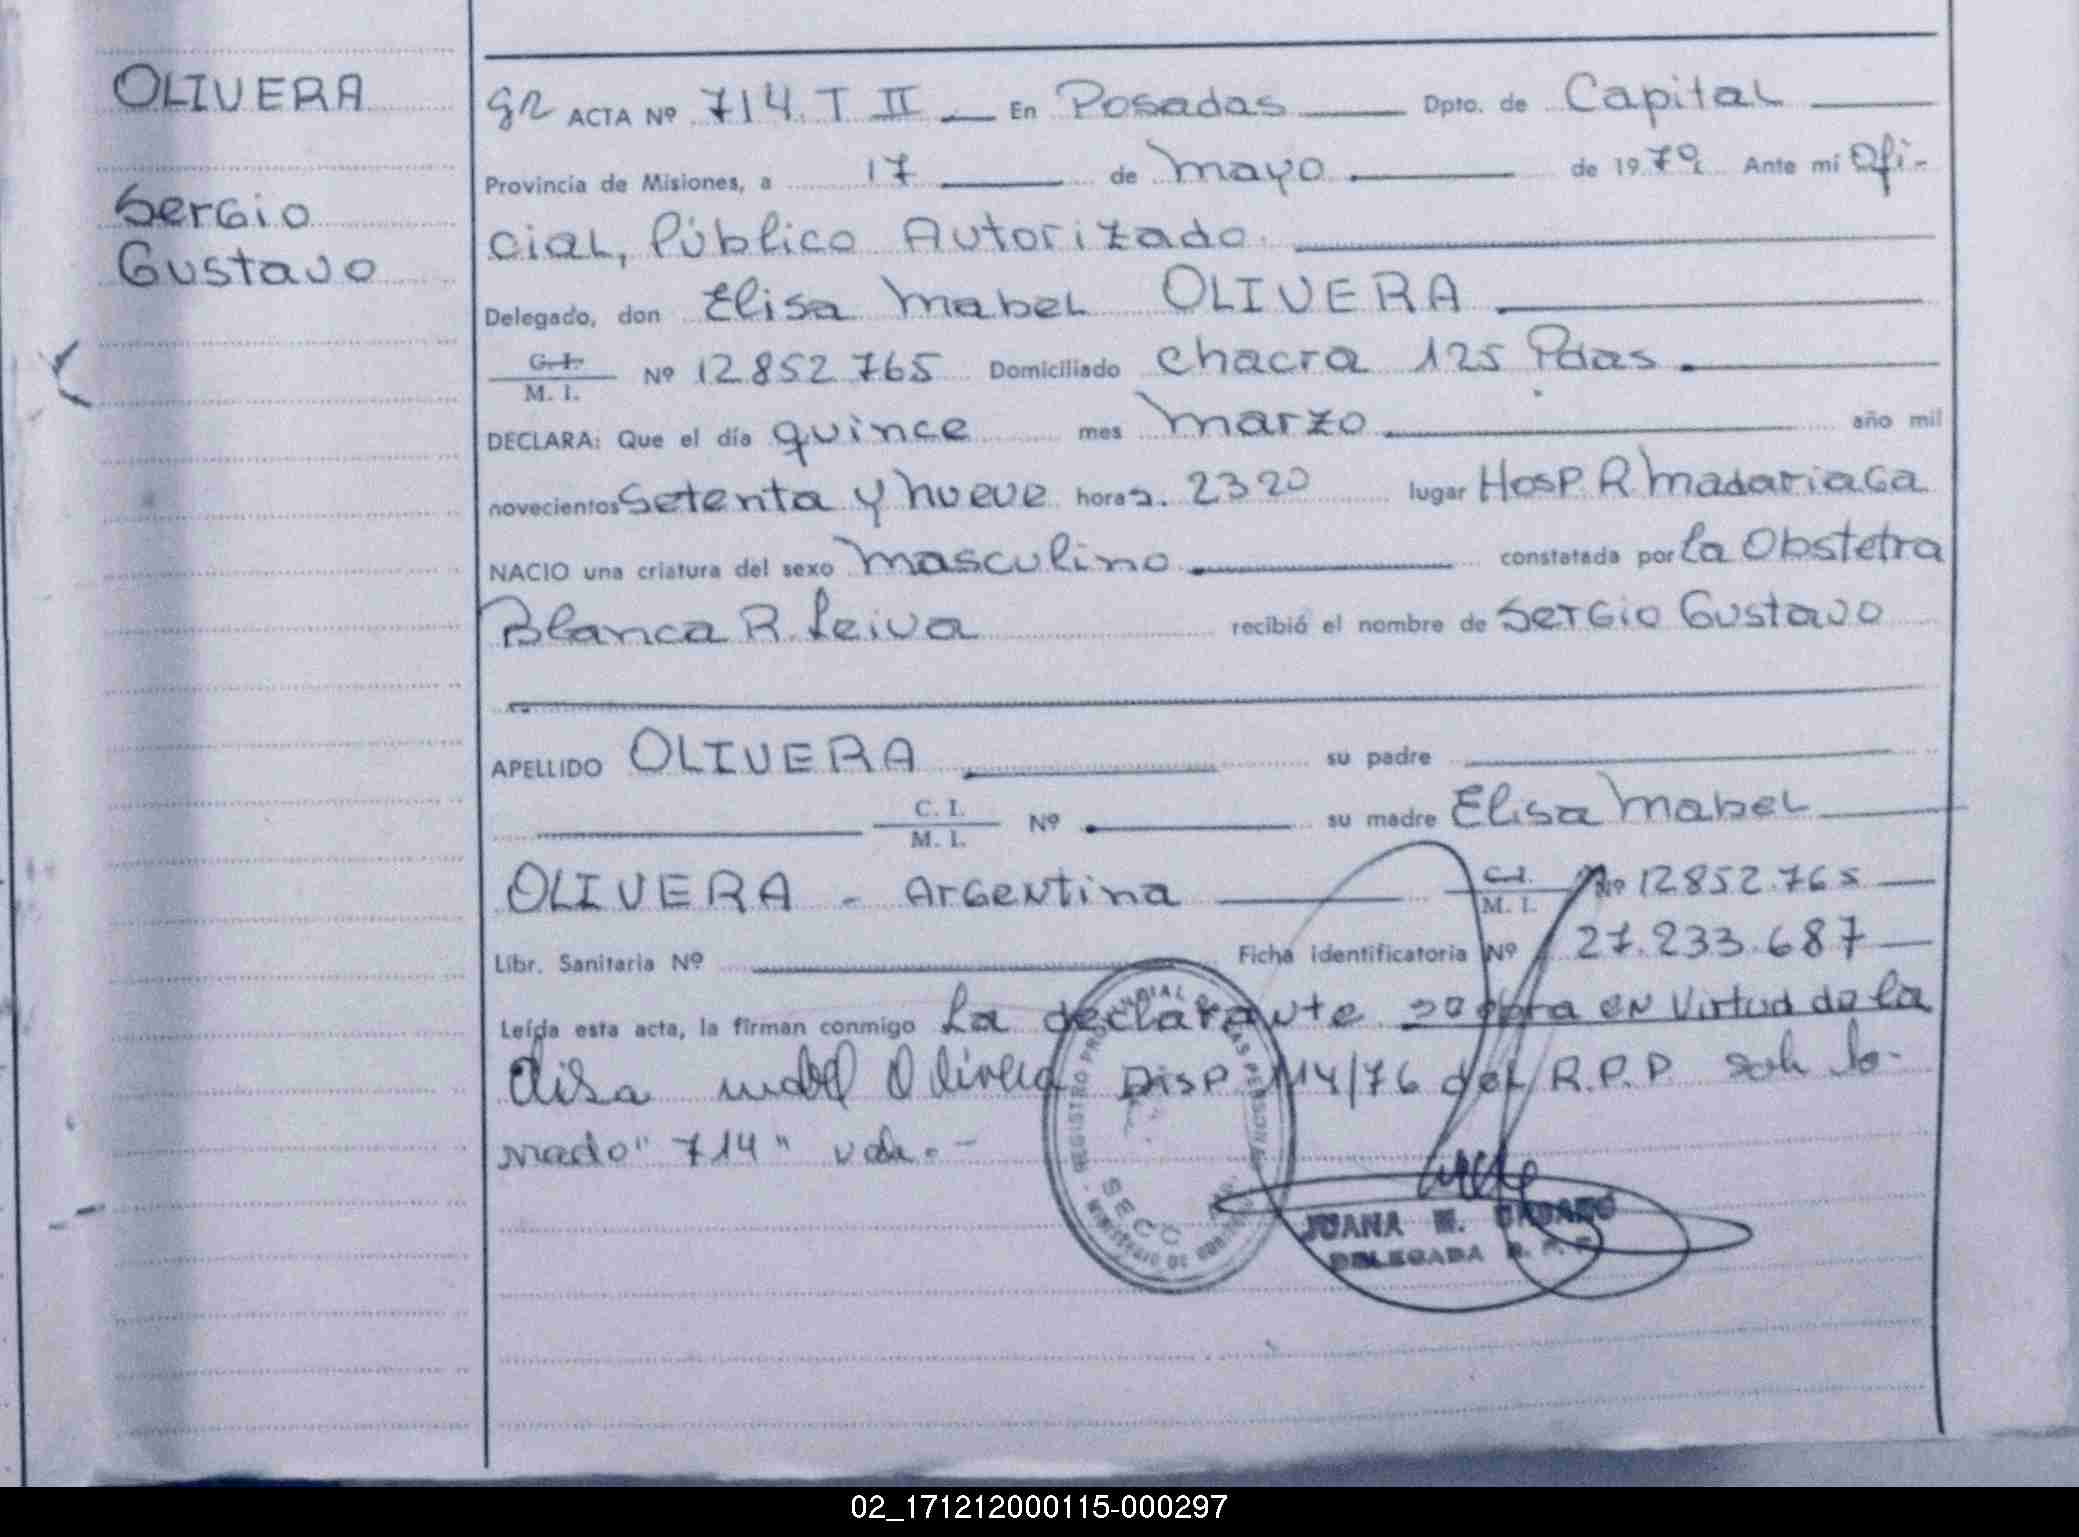 OLIVERA
Sergio
Gustavo
gr ACTA Nº 714 T II En Posadas Dpto. de Capital
Provincia de Misiones, a 17 de mayo de 1979 Ante mí Ofi-
cial, Público Autorizado.
Delegado, don Elisa Mabel OLIVERA
C. I. / M. I. Nº 12852765 Domiciliado Chacra 125 Pdas.
DECLARA: Que el día quince mes Marzo año mil
novecientos Setenta y nueve horas. 2320 lugar Hosp. R. Madariaga
NACIO una criatura del sexo Masculino constatada por la Obstetra
Blanca R. Leiva recibió el nombre de Sergio Gustavo
APELLIDO OLIVERA su padre
C. I. / M. I. Nº su madre Elisa Mabel
OLIVERA - Argentina C. I. / M. I. Nº 12852.765
Libr. Sanitaria Nº Ficha identificatoria Nº 27.233.687
Leída esta acta, la firman conmigo La declarante en Virtud de la
Elisa Mabel Olivera Disp. 114/76 del R.P.P.
"714" vale.-
REGISTRO PROVINCIAL DE LAS PERSONAS
SECC
MINISTERIO DE GOBIERNO
JUANA
DELEGADA R. P. P.
02_171212000115-000297